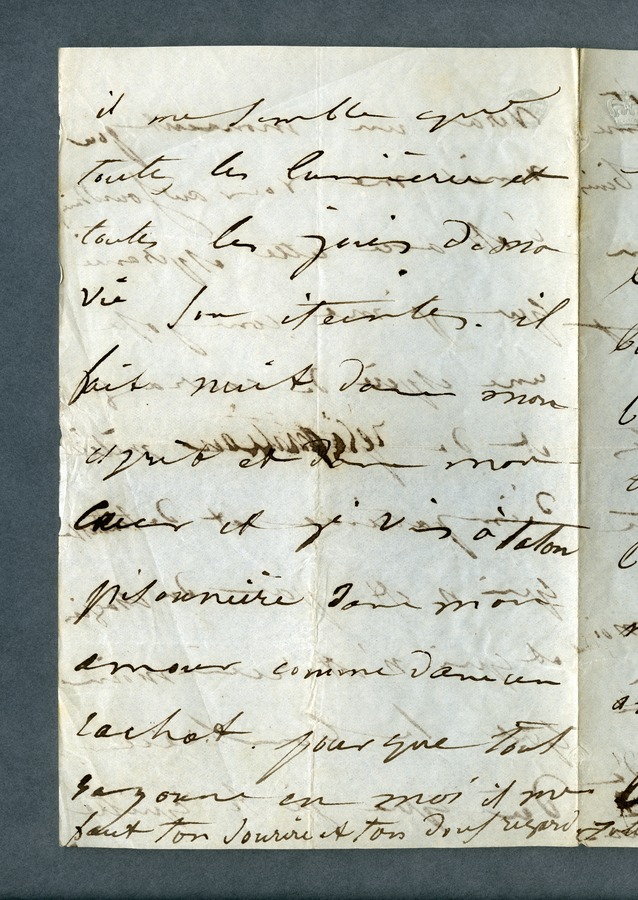 il me semble que
toute les lumières et
toutes les joies de ma
vie son éteintes. il
fait nuit dans mon
esprit et dans mon
cœur et je vis à taton
prisonnière dans mon
amour comme dans un
cachot. pour que tout
rayonne en moi il me
faut ton sourire et ton doux regard